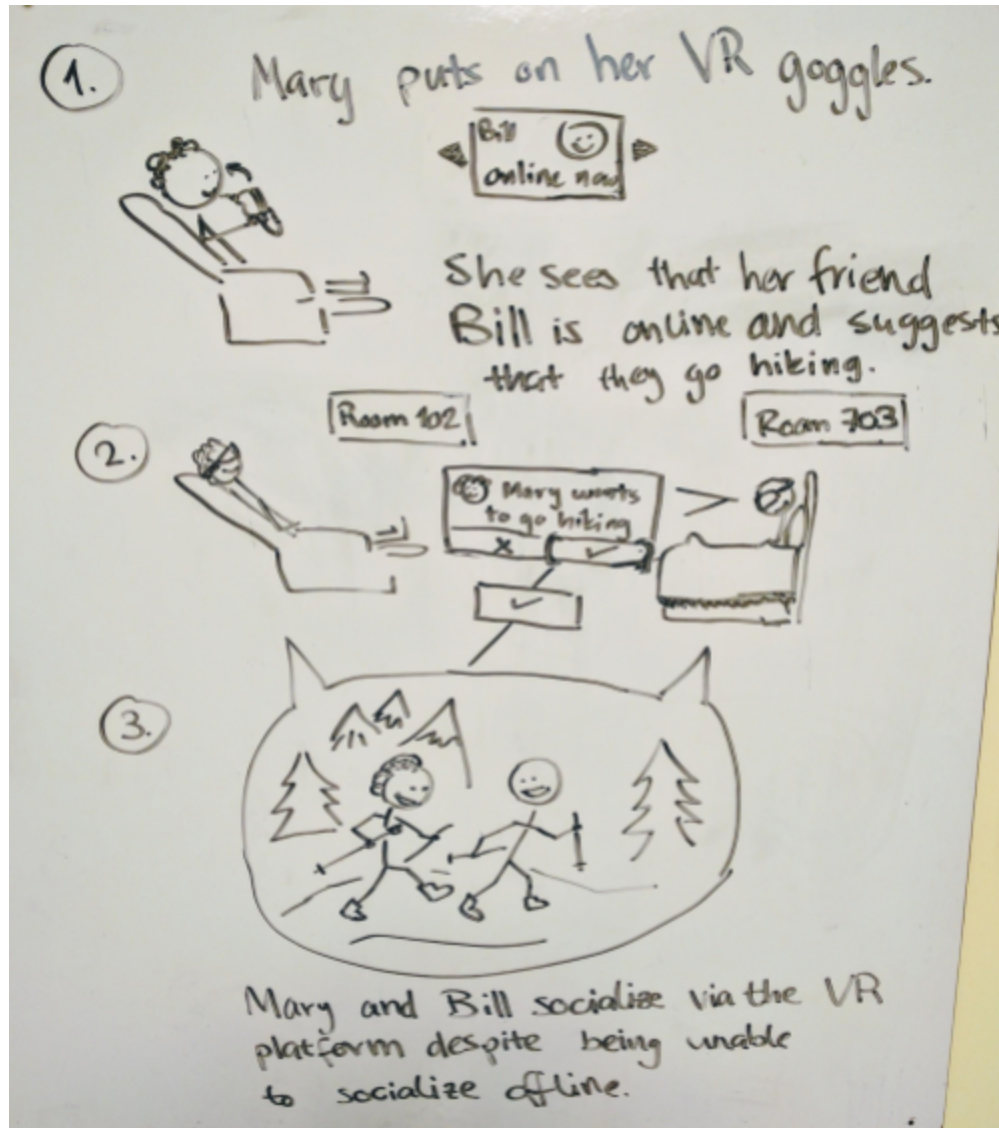 1.
Mary puts on her VR goggles.
Bill
online now
She sees that her friend
Bill is online and suggests
that they go hiking.
2.
Room 102
Room 703
Mary wants
to go hiking
3.
Mary and Bill socialize via the VR
platform despite being unable
to socialize offline.